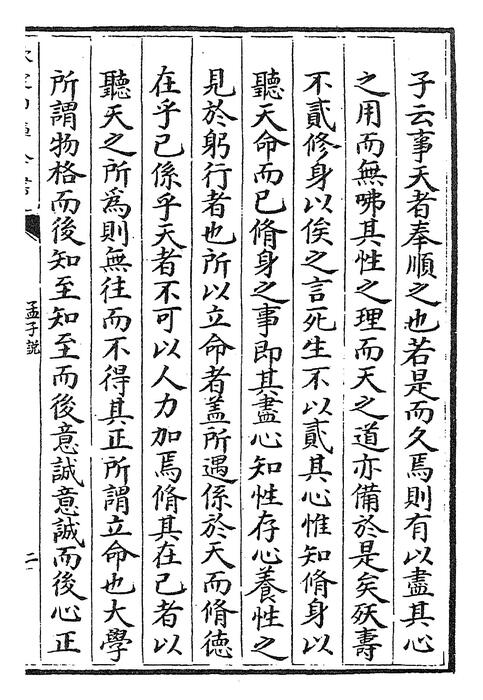 子云事天者奉順之也若是而久焉則有以盡其心
之用而無咈其性之理而天之道亦備於是矣殀壽
不貳修身以俟之言死生不以貳其心惟知脩身以
聽天命而已脩身之事即其盡心知性存心養性之
見於躬行者也所以立命者蓋所遇係於天而脩德
在乎已係乎天者不可以人力加焉脩其在已者以
聽天之所為則無往而不得其正所謂立命也大學
所謂物格而後知至知至而後意誠意誠而後心正
孟子說
二